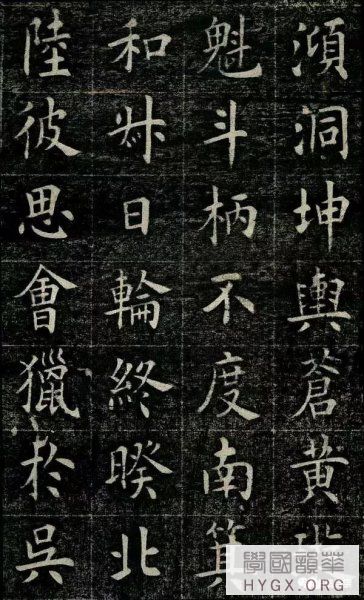 澒洞坤輿蒼黃
魁斗柄不度南箕
和叔日輪終暌北
陸彼思會獵於吳
華韻國學
HYGX.ORG